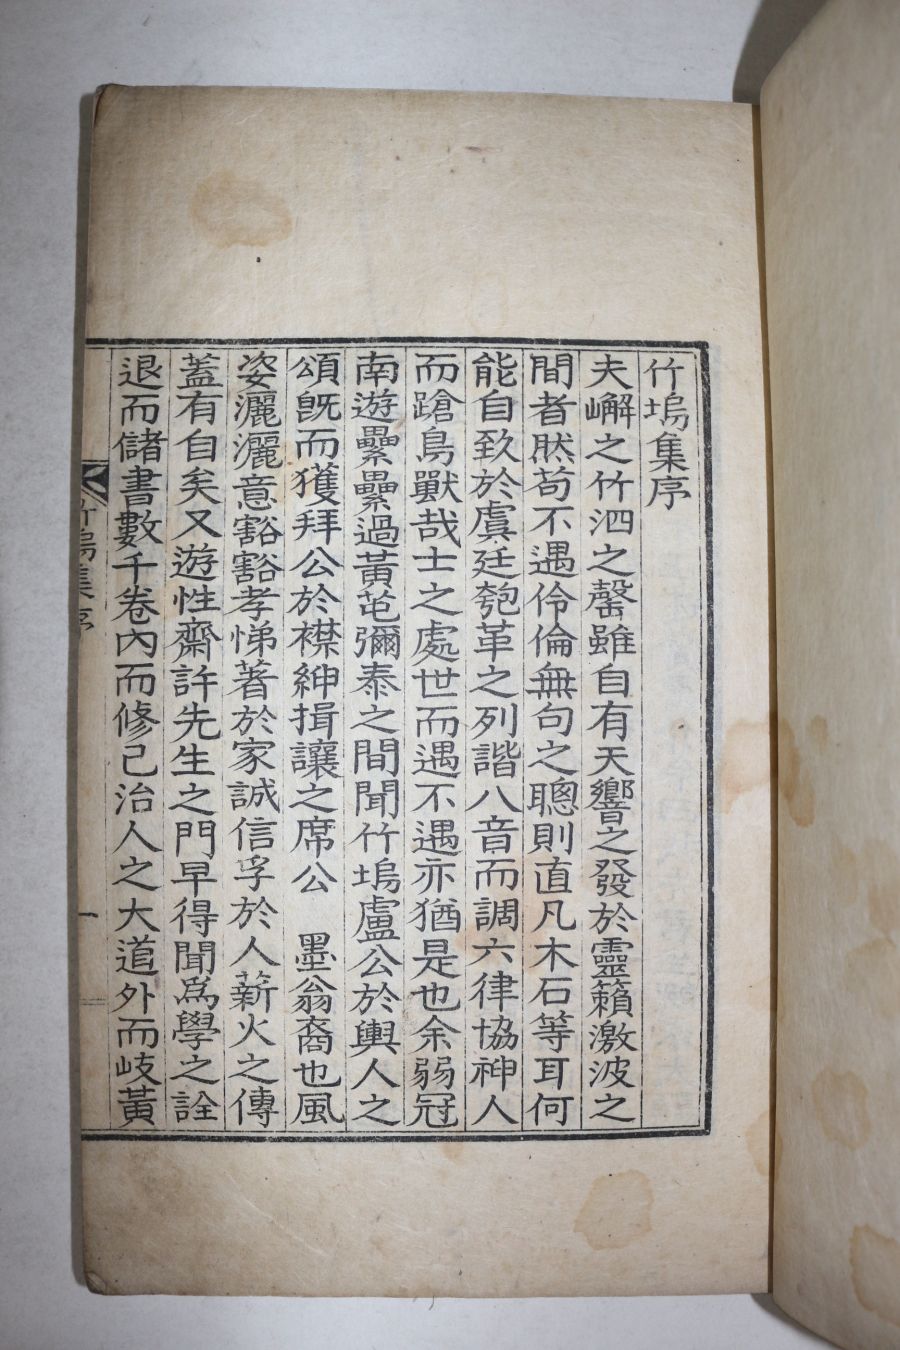 竹塢集序
夫嶰之竹泗之罄雖自有天響之發於靈籟激波之
間者然苟不遇伶倫無句之聰則直凡木石等耳何
能自致於虞廷匏革之列諧八音而調六律協神人
而蹌鳥獸哉士之處世而遇不遇亦猶是也余弱冠
南遊纍纍過黃芚彌泰之間聞竹塢盧公於輿人之
頌旣而獲拜公於襟紳揖讓之席公　墨翁裔也風
姿灑灑意豁豁孝悌著於家誠信孚於人薪火之傳
蓋有自矣又遊性齋許先生之門早得聞爲學之詮
退而儲書數千卷內而修己治人之大道外而岐黃
竹塢集序
一